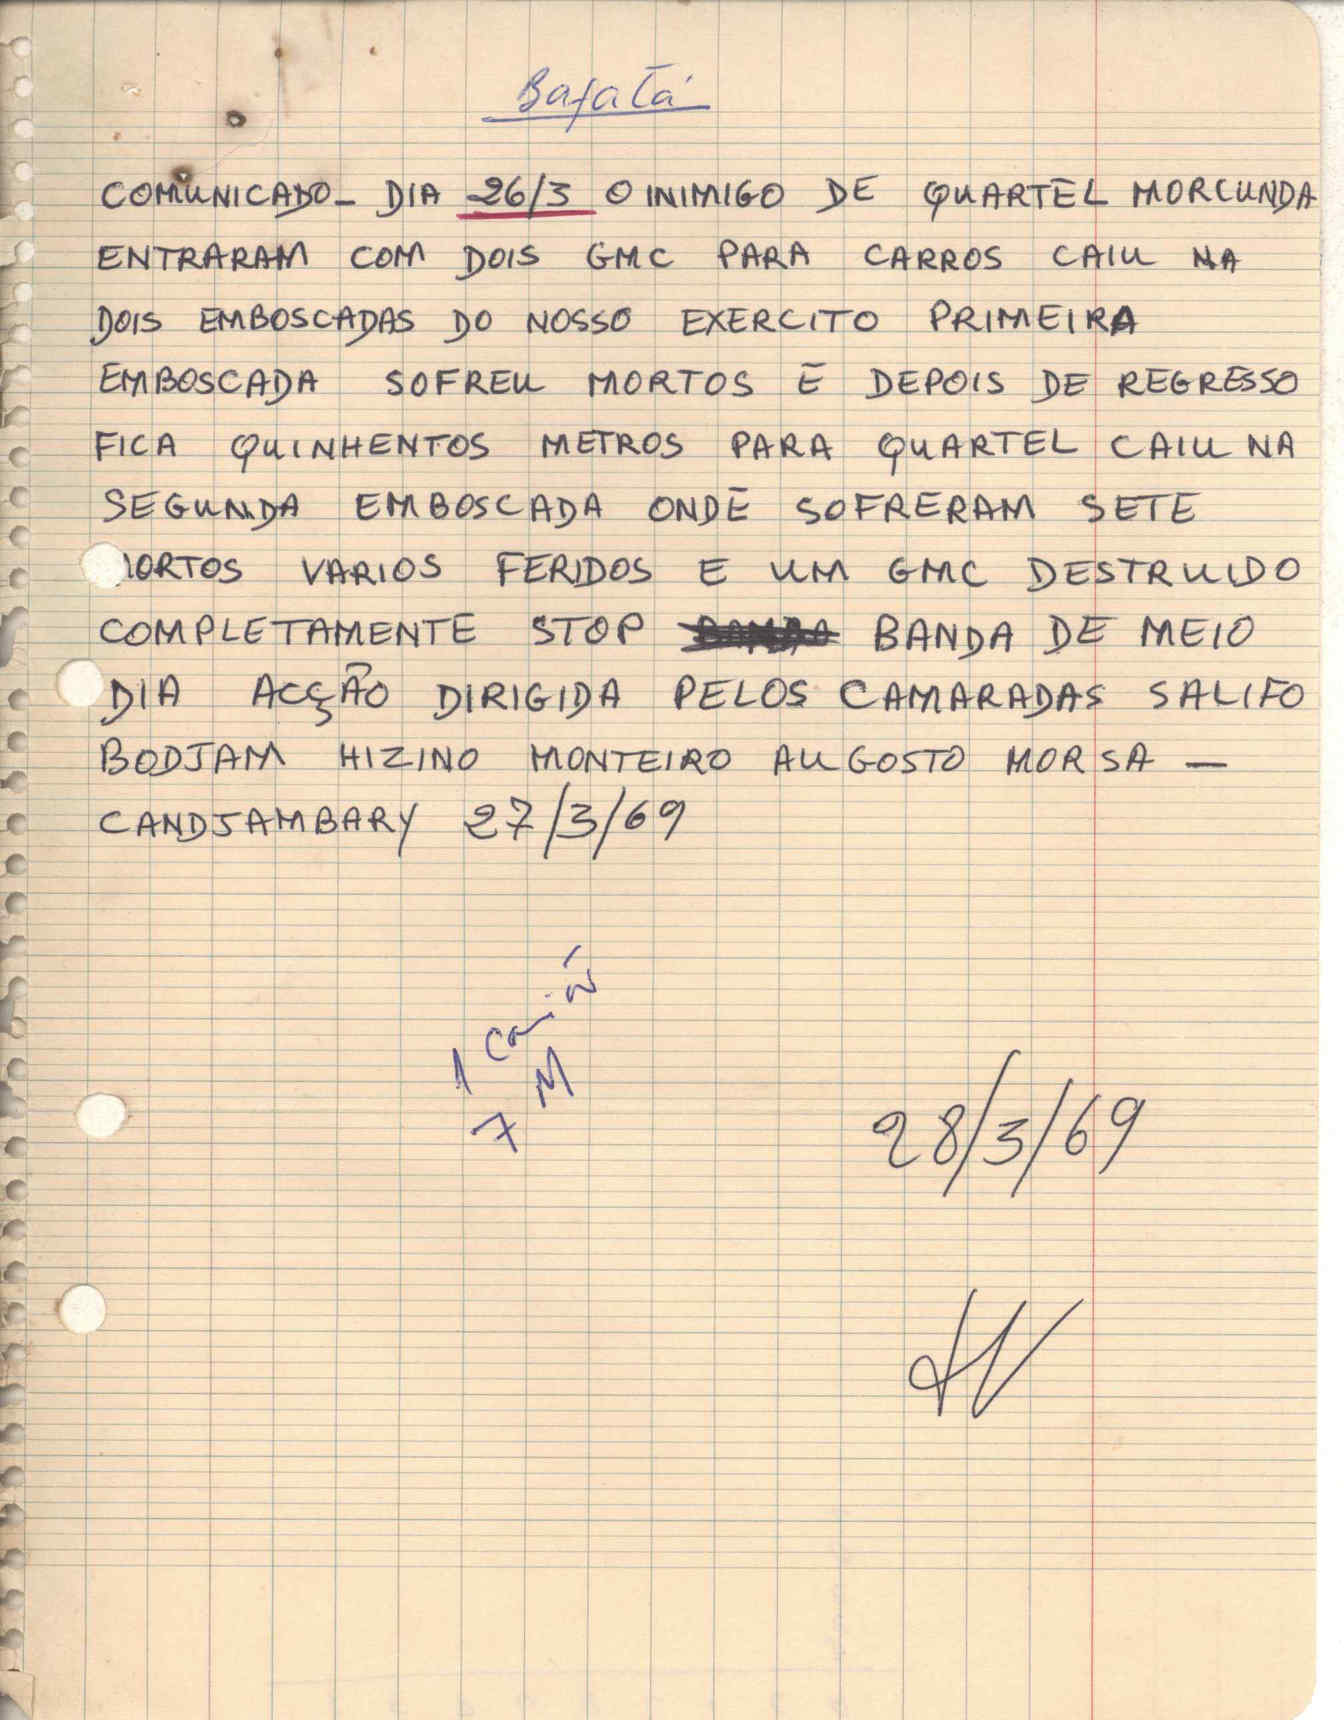 Bafatá
COMUNICADO_ DIA 26/3 O INIMIGO DE QUARTEL MORCUNDA
ENTRARAM COM DOIS GMC PARA CARROS CAIU NA
DOIS EMBOSCADAS DO NOSSO EXERCITO PRIMEIRA
EMBOSCADA SOFREU MORTOS E DEPOIS DE REGRESSO
FICA QUINHENTOS METROS PARA QUARTEL CAIU NA
SEGUNDA EMBOSCADA ONDE SOFRERAM SETE
MORTOS VARIOS FERIDOS E UM GMC DESTRUIDO
COMPLETAMENTE STOP BANDA DE MEIO
DIA ACÇÃO DIRIGIDA PELOS CAMARADAS SALIFO
BODJAM HIZINO MONTEIRO AUGOSTO MORSA —
CANDJAMBARY 27/3/69
1 camião
7 M
28/3/69